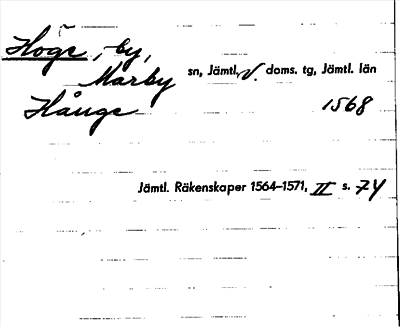 Höge, by,
Marby sn, Jämtl. v. doms. tg, Jämtl. län
Hånge 1568
Jämtl. Räkenskaper 1564–1571, II s. 74